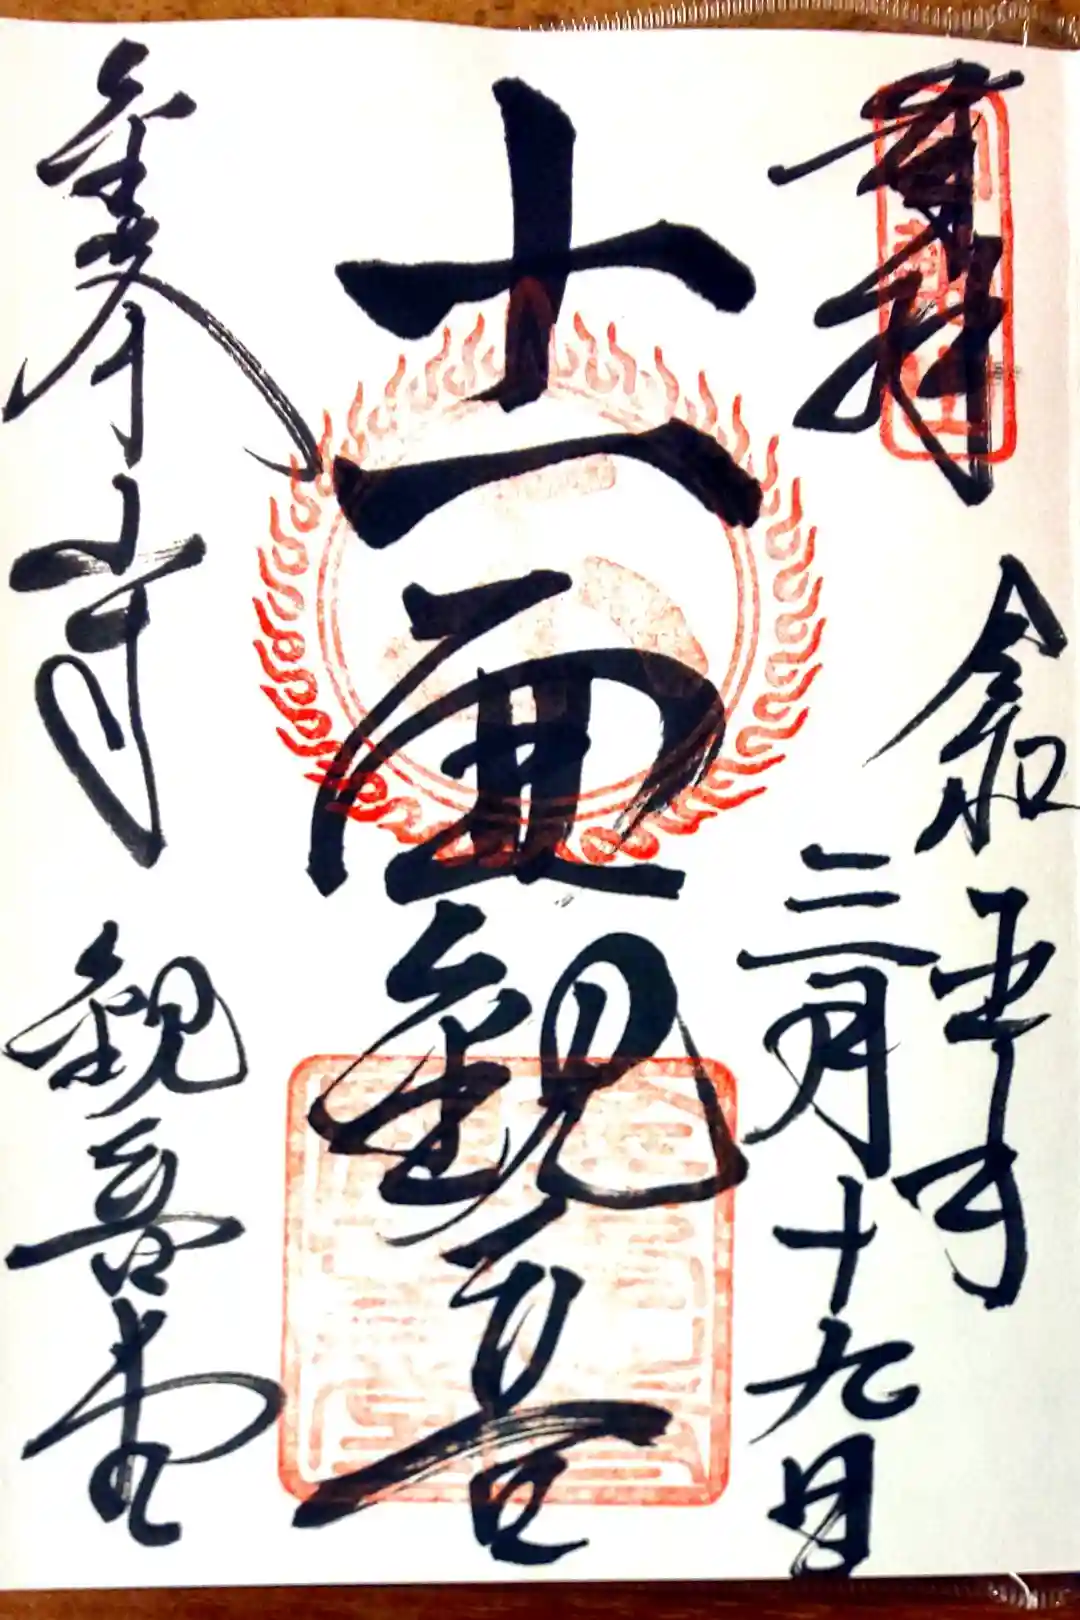 奉拝
令和五年
三月十九日
十一面観音
金峯山寺 観音堂